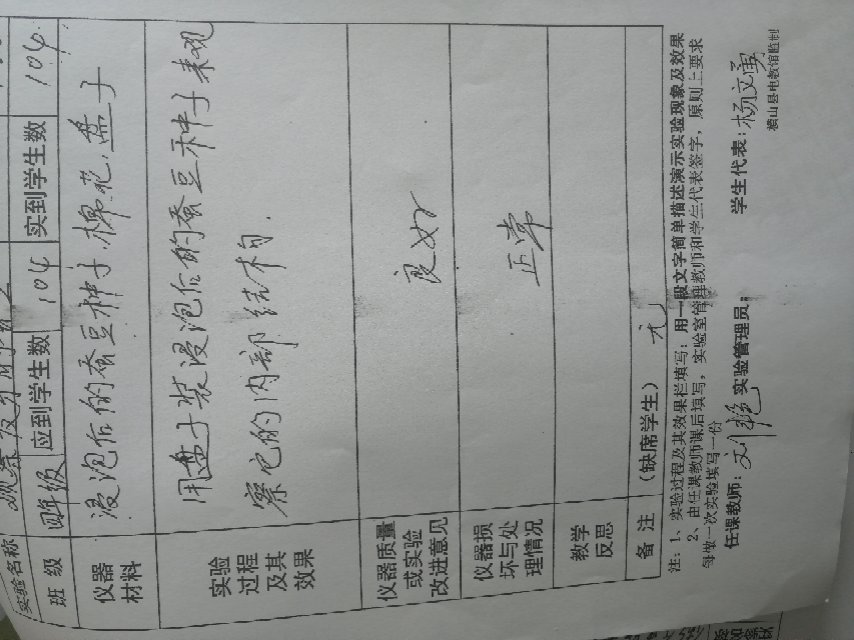 实验名称
班 级 四年级 应到学生数 104 实到学生数 104
仪器材料 浸泡后的蚕豆种子.棉花.盘子
实验过程及其效果 用盘子装浸泡后的蚕豆种子来观
察它的内部结构.
仪器质量或实验改进意见 良好
仪器损坏与处理情况 正常
教学反思
备 注 (缺席学生) 无
注:1、实验过程及其效果栏填写:用一段文字简单描述演示实验现象及效果
2、由任课教师课后填写,实验室管理教师和学生代表签字,原则上要求
每做一次实验填写一份
任课教师:刘艳 实验管理员: 学生代表:杨文勇
横山县电教馆监制